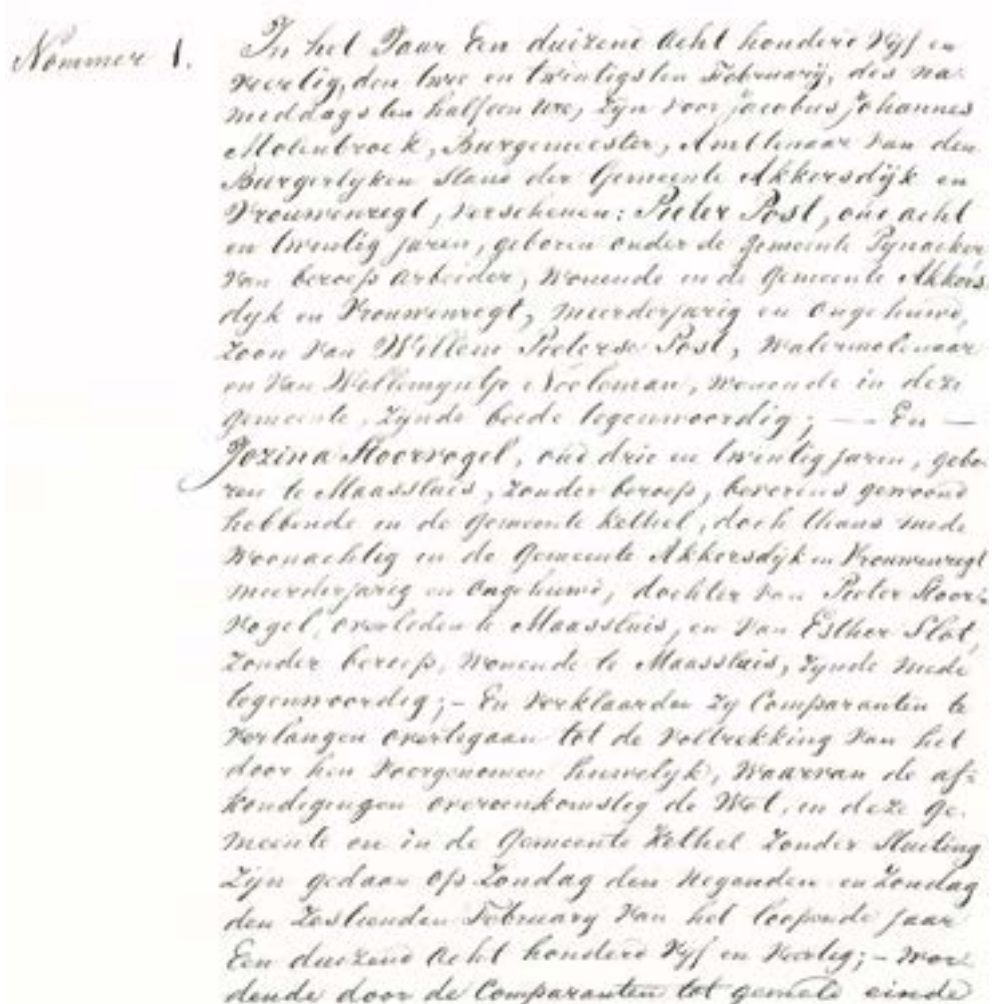 Nommer 1.
In het Jaar Een duizend Acht honderd Vijf en
Veertig, den twee en twintigsten Februarij, des na-
middags ten half een ure, Zijn voor Jacobus Johannes
Molenbroek, Burgemeester, Ambtenaar van den
Burgerlyken Stand der Gemeente Akkersdijk en
Vrouwenregt, Verschenen: Pieter Post, oud acht
en twintig jaren, geboren onder de Gemeente Pynacker
Van beroep Arbeider, Wonende in de Gemeente Akkers
dyk en Vrouwenregt, meerderjarig en Ongehuwd,
Zoon Van Willem Pieterse Post, Watermolenaar
en Van Willemyntje Neeleman, Wonende in deze
Gemeente, Zynde beede tegenwoordig; — En —
Jozina Stoorvogel, oud drie en twintig jaren, gebo-
ren te Maassluis, Zonder beroep, bevorens gewoond
hebbende in de Gemeente Kethel, doch thans mede
Woonachtig in de Gemeente Akkersdijk en Vrouwenregt
meerderjarig en Ongehuwd, dochter van Pieter Stoor-
Vogel, Overleden te Maassluis, en Van Esther Slot,
Zonder beroep, Wonende te Maassluis, Zynde mede
tegenwoordig; - En Verklaarden Zy Comparanten te
Verlangen overtegaan tot de Voltrekking Van het
door hen Voorgenomen huwelyk, Waarvan de af-
kondigingen overeenkomstig de Wet, in deze Ge-
meente en in de Gemeente Kethel Zonder Stuiting
Zijn gedaan Op Zondag den Negenden en Zondag
den Zestienden February Van het loopende jaar
Een duizend Acht honderd Vijf en Veertig; - Wor-
dende door de Comparanten tot gemeld einde